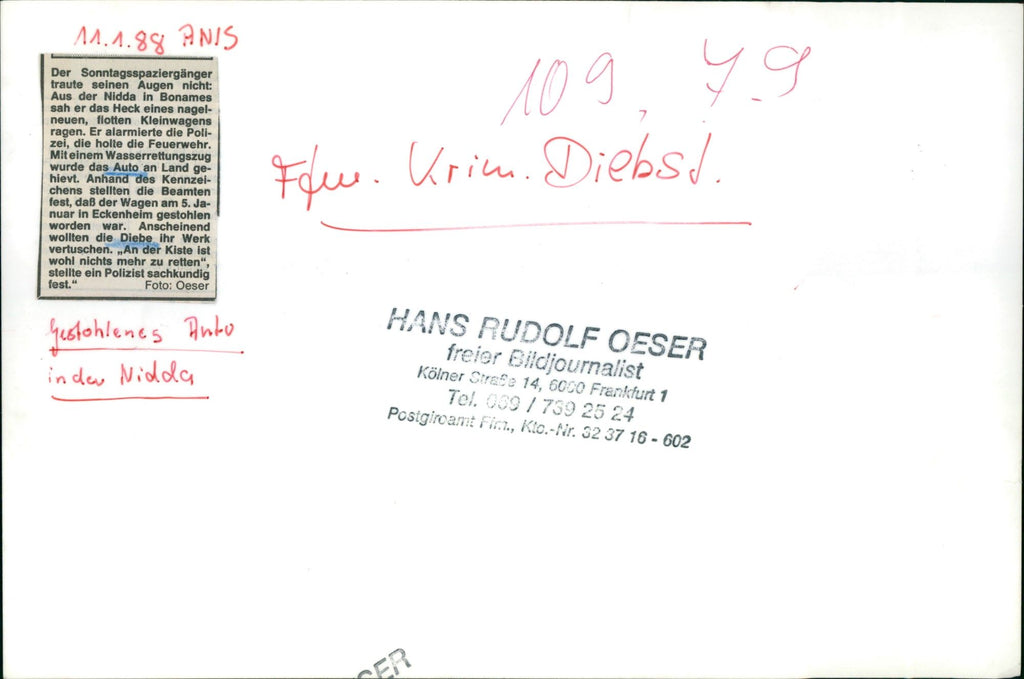 11.1.88 ANIS
109, 7.9
Der Sonntagsspaziergänger
traute seinen Augen nicht:
Aus der Nidda in Bonames
sah er das Heck eines nagel-
neuen, flotten Kleinwagens
ragen. Er alarmierte die Poli-
zei, die holte die Feuerwehr.
Mit einem Wasserrettungszug
wurde das Auto an Land ge-
hievt. Anhand des Kennzei-
chens stellten die Beamten
fest, daß der Wagen am 5. Ja-
nuar in Eckenheim gestohlen
worden war. Anscheinend
wollten die Diebe ihr Werk
vertuschen. „An der Kiste ist
wohl nichts mehr zu retten“,
stellte ein Polizist sachkundig
fest.“ Foto: Oeser
Krim. Diebst.
Gestohlenes Auto
in der Nidda
HANS RUDOLF OESER
freier Bildjournalist
Kölner Straße 14, 6000 Frankfurt 1
Tel. 069 / 739 25 24
Postgiroamt Ffm., Kto.-Nr. 32 37 16 - 602
SER